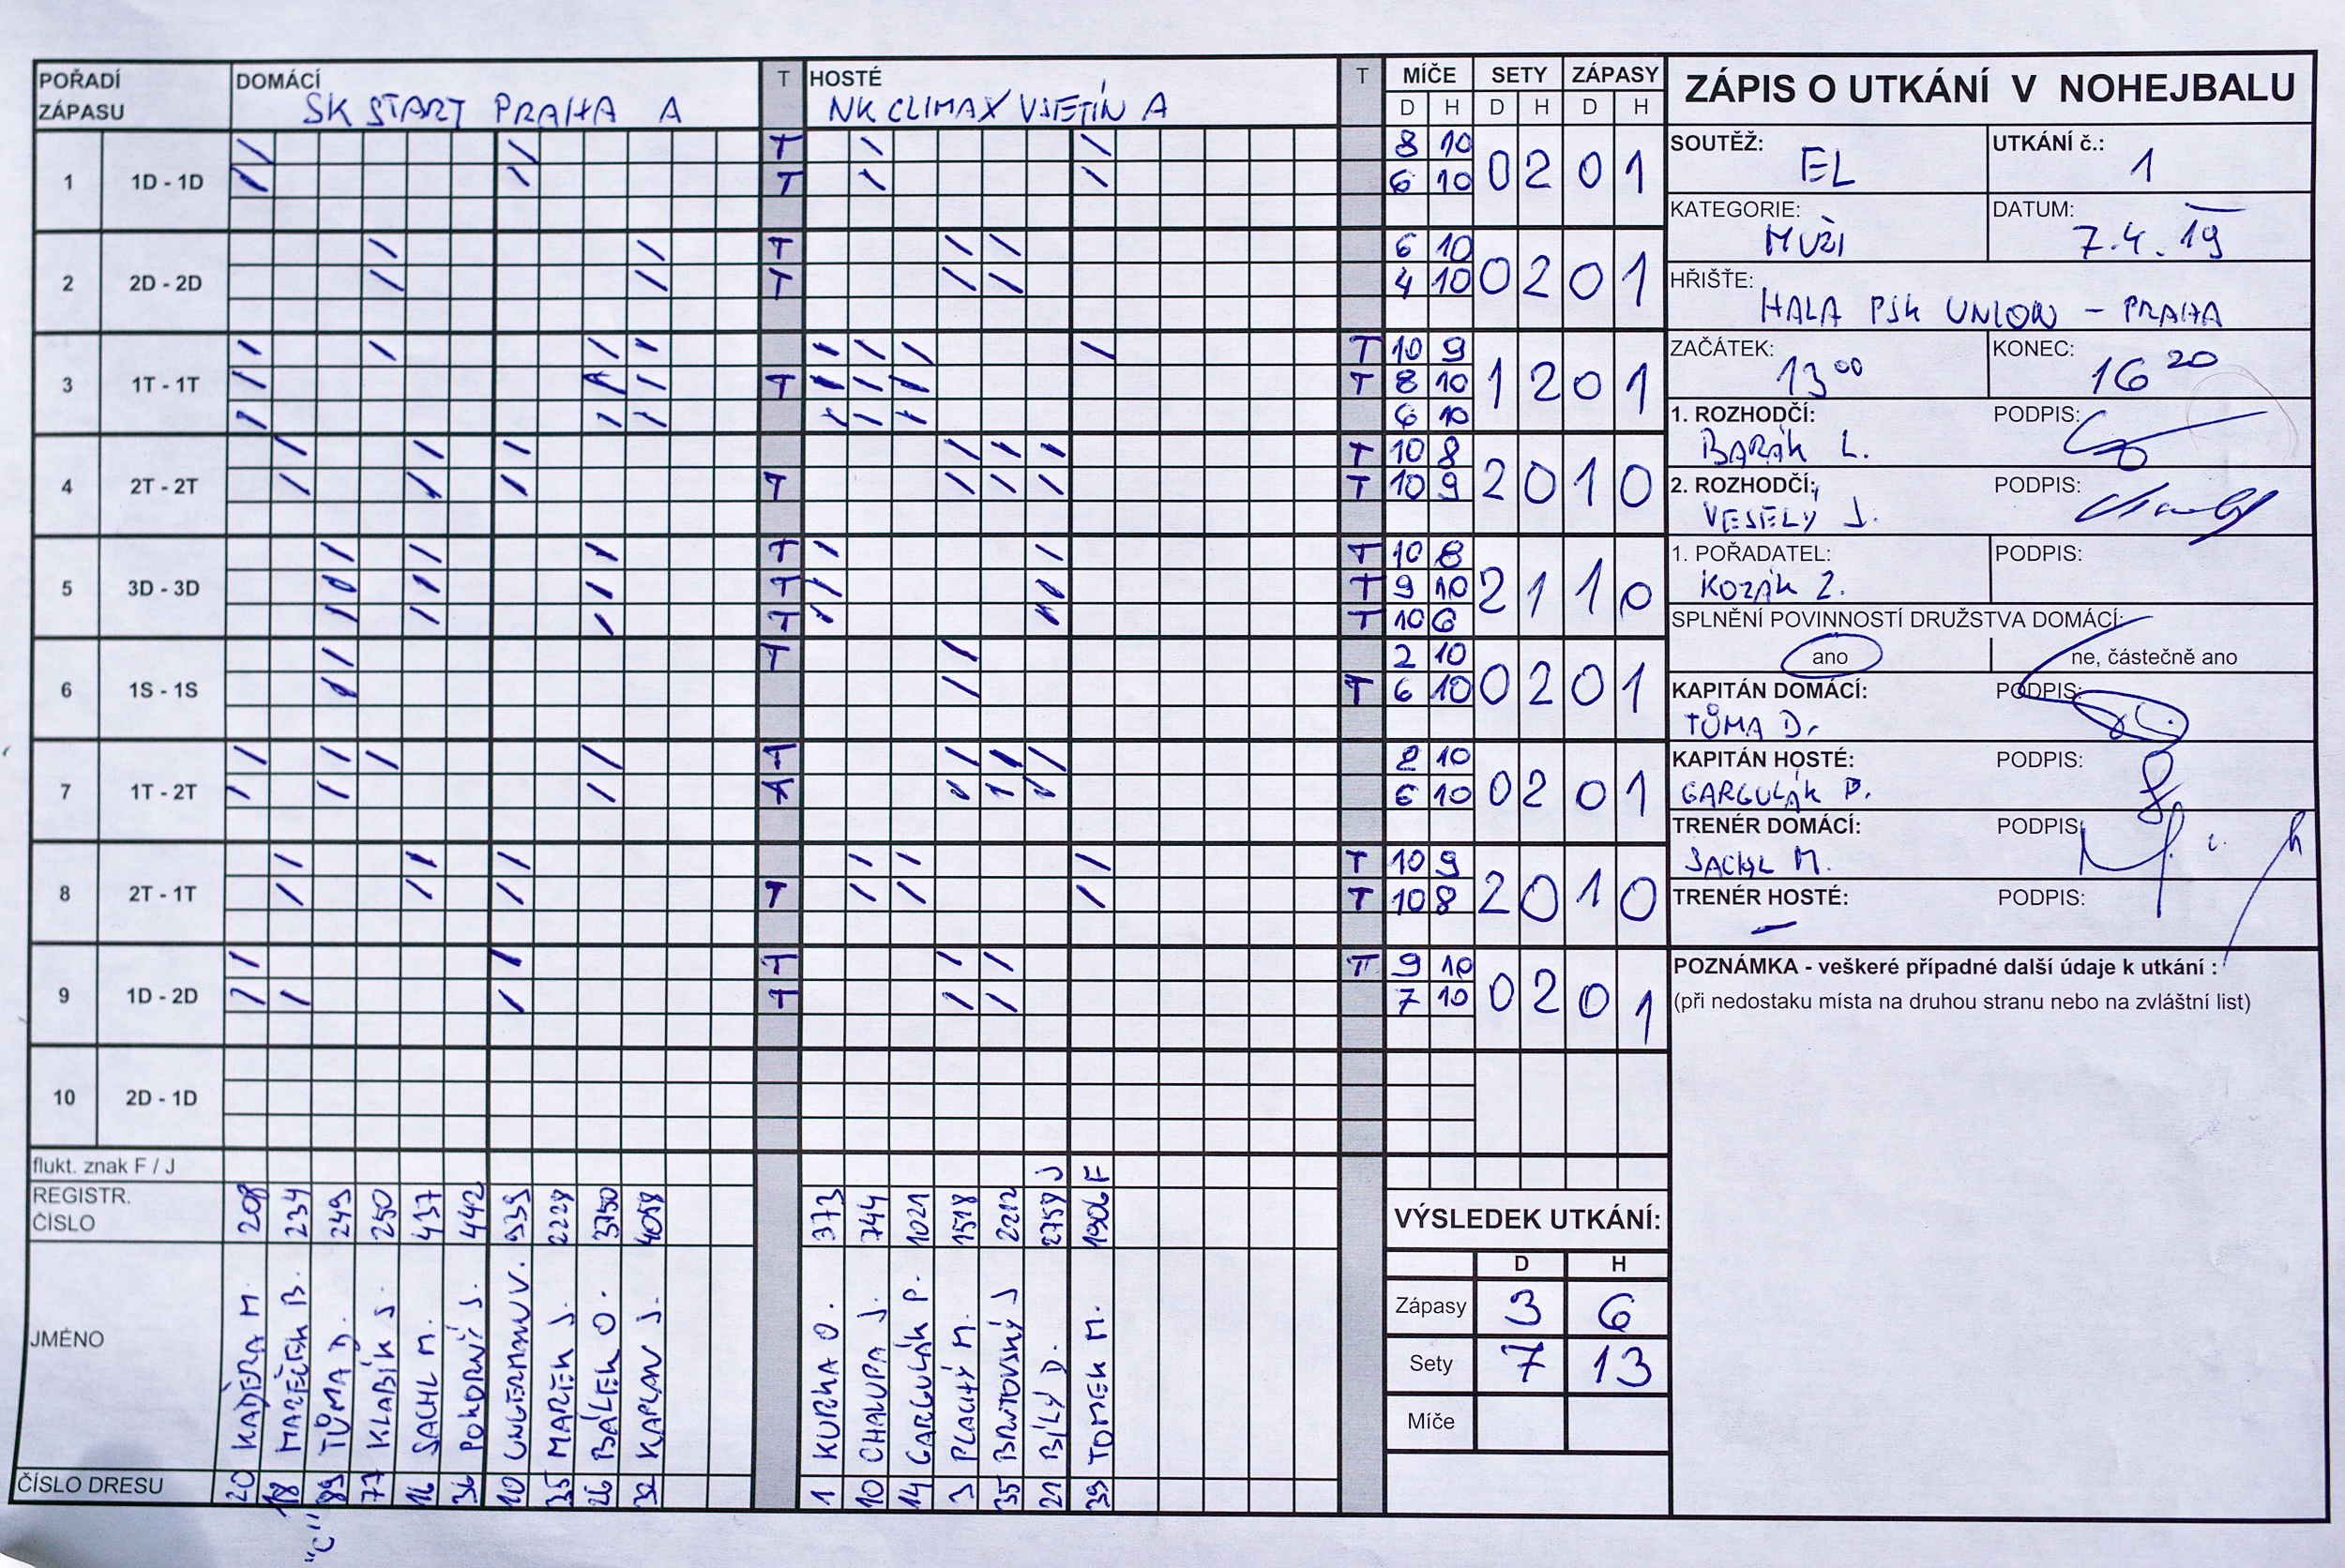 POŘADÍ ZÁPASU DOMÁCÍ SK START PRAHA A T HOSTÉ NK CLIMAX VSETÍN A T MÍČE SETY ZÁPASY
D H D H D H
1 1D - 1D T 8 10 0 2 0 1
T 6 10
2 2D - 2D T 6 10 0 2 0 1
T 4 10
3 1T - 1T T 10 9 1 2 0 1
T T 8 10
6 10
4 2T - 2T T 10 8 2 0 1 0
T T 10 9
5 3D - 3D T T 10 8 2 1 1 0
T T 9 10
T T 10 6
6 1S - 1S T 2 10 0 2 0 1
T 6 10
7 1T - 2T T 2 10 0 2 0 1
6 10
8 2T - 1T T 10 9 2 0 1 0
T T 10 8
9 1D - 2D T T 9 10 0 2 0 1
T 7 10
10 2D - 1D
flukt. znak F / J J F
REGISTR. ČÍSLO 208 234 249 250 437 442 939 2228 3750 4058 373 744 1021 1518 2212 2758 1906
JMÉNO KADĚRA M. MAREČEK B. TŮMA D. KLABÍK J. SACHL M. POKORNÝ J. UNGERMANN V. MAREK J. BÁLEK O. KAPLAN J. KURKA O. CHALUPA J. GARGULÁK P. PLACHÝ M. BRUTOVSKÝ J BÍLÝ D. TOMEK M.
ČÍSLO DRESU 20 18 89 77 16 36 10 35 26 32 1 10 14 3 35 21 39
"C"
VÝSLEDEK UTKÁNÍ:
D H
Zápasy 3 6
Sety 7 13
Míče
ZÁPIS O UTKÁNÍ V NOHEJBALU
SOUTĚŽ: EL UTKÁNÍ č.: 1
KATEGORIE: MUŽI DATUM: 7.4. 19
HŘIŠTE: HALA PSK UNION - PRAHA
ZAČÁTEK: 13 00 KONEC: 16 20
1. ROZHODČÍ: PODPIS:
BARÁK L.
2. ROZHODČÍ: PODPIS:
VESELÝ J.
1. POŘADATEL: PODPIS:
KOZÁK Z.
SPLNĚNÍ POVINNOSTÍ DRUŽSTVA DOMÁCÍ:
ano ne, částečně ano
KAPITÁN DOMÁCÍ: PODPIS:
TŮMA D.
KAPITÁN HOSTÉ: PODPIS:
GARGULÁK P.
TRENÉR DOMÁCÍ: PODPIS:
SACHL M.
TRENÉR HOSTÉ: PODPIS:
–
POZNÁMKA - veškeré případné další údaje k utkání :
(při nedostaku místa na druhou stranu nebo na zvláštní list)